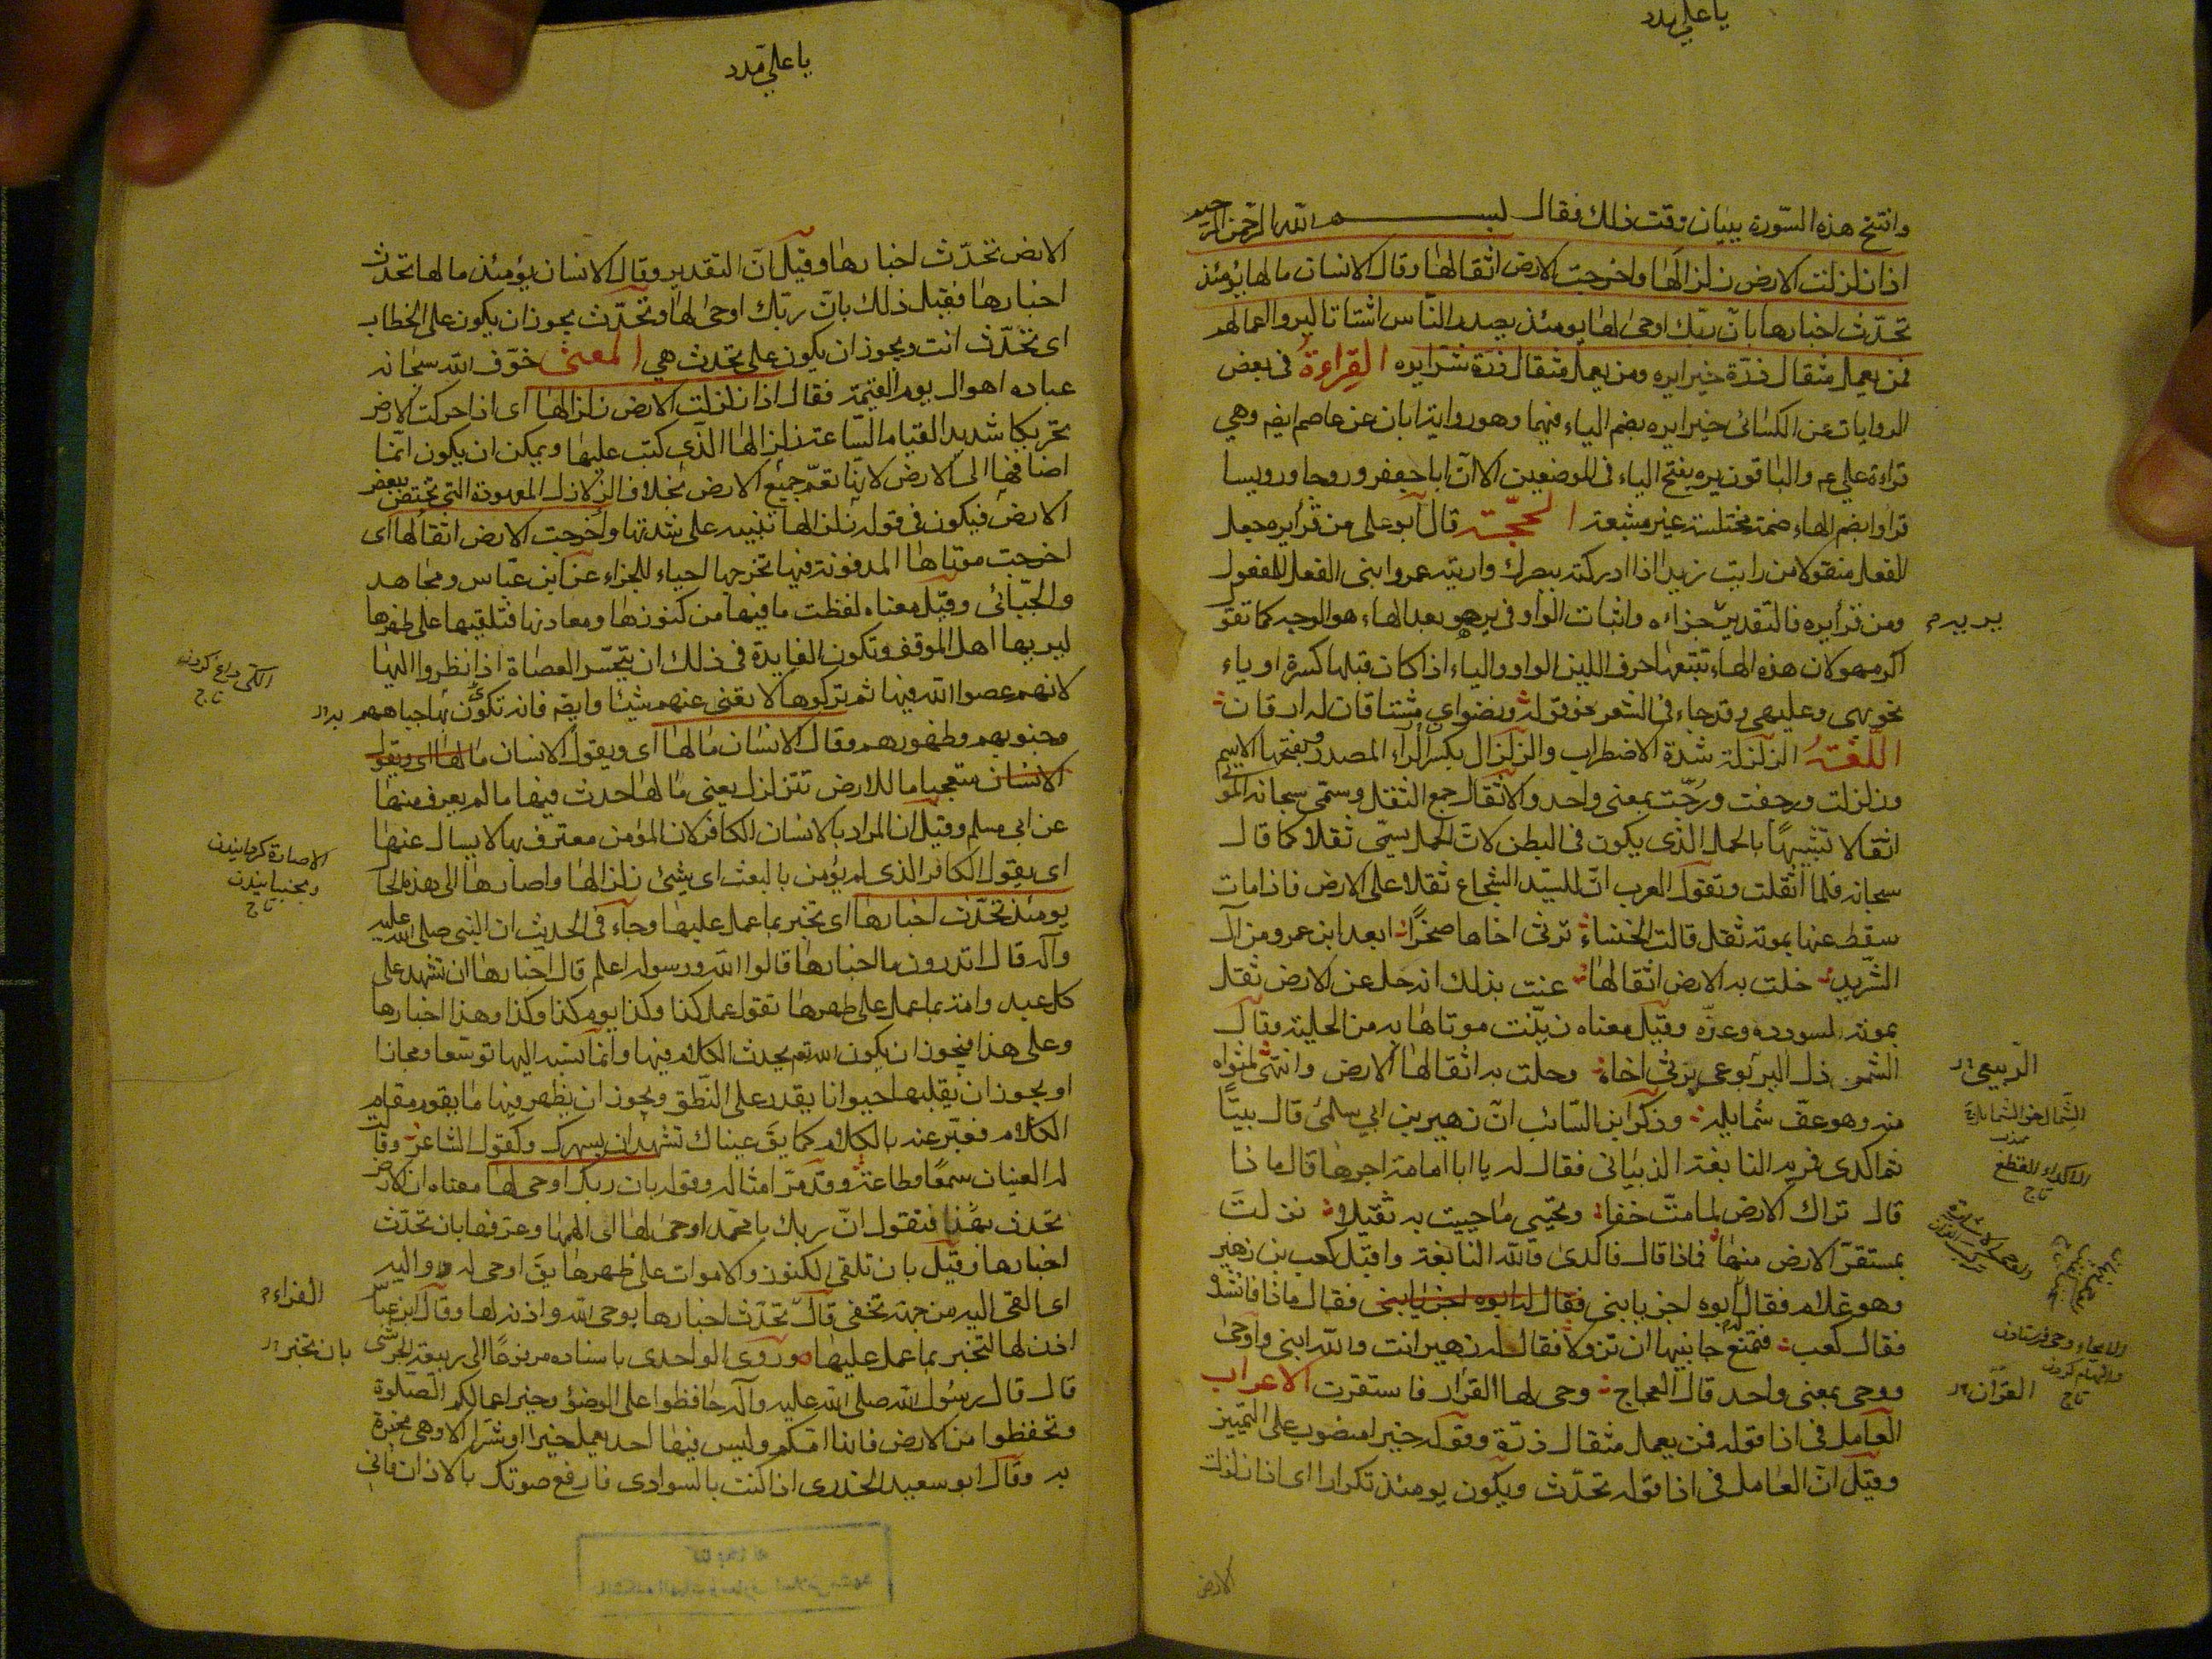 يا علي مدد
وافتتح هذه السّورة ببيان وقت ذلك فقال بسم الله الرّحمن الرّحيم
اذا زلزلت الارض زلزالها واخرجت الارض اثقالها وقال الانسان ما لها يومئذ
تحدّث اخبارها بانّ ربّك اوحى لها يومئذ يصدر النّاس اشتاتا ليروا اعمالهم
فمن يعمل مثقال ذرّة خيرا يره ومن يعمل مثقال ذرّة شرّا يره القراءة في بعض
الروايات عن الكسائى خيرا يره بضم الياء فيهما وهو رواية ابان عن عاصم ايضه وهي
قراءة علي ع م والباقون يره بفتح الياء فى الموضعين الا انّ ابا جعفر وروحا ورويسا
قراوا بضم الهاء ضمة مختلسة غير مشبعة الحجّة قال ابو على من قرأ يره جعل
الفعل منقولا من رايت زيدا اذا ادركته ببصرك واريته عمروا بنى الفعل للمفعول
ومن قرأ يره فالتّقدير يرى جزاءه واثبات الواو فى يرهو بعد الهاء هو الوجه كما تقو
اكرمهو لان هذه الهاء تتبعها حرف اللين الواو والياء اذا كان قبلها كسرة او ياء
نحو بهى وعليهى وقد جاء فى الشعر نحو قوله ونضواي مشتاقان له ارقان
اللّغة الزلزلة شدّة الاضطراب والزلزال بكسر الزاء المصدر وبفتحها الاسم
وزلزلت ورجفت ورُجّت بمعنى واحد والاثقال جمع الثقل وسمّى سبحانه الموتى
اثقالا تشبيها بالحمل الذى يكون فى البطن لانّ الحمل يسمّى ثقلا كما قال
سبحانه فلما اثقلت وتقول العرب انّ للسيّد الشجاع ثقلا على الارض فاذا مات
سقط عنها بموته ثقل قالت الخنساء ترثى اخاها صخرًا ابعد ابن عمرو من آل
الشّريد حلت به الارض اثقالها عنت بذلك انه حل عن الارض ثقل
بموته لسودده وعزّه وقيل معناه زيّنت موتاها به من الحلية وقال
الشمر ذل اليربوعى يرثى اخاه وحلت به اثقالها الارض وانتهى لمثواه
منه وهو عفّ شمايله وذكر ابن السّائب انّ زهير بن ابي سلمى قال بيتًا
ثم اكدى فمر به النابغة الذبيانى فقال له يا ابا امامة اجزها قال ماذا
قال تراك الارض لما متّ خفا ويحيى ما حييت به ثقيلا نزلت
بمستقرّ الارض منها فماذا قال فاكدى والله النابغة واقبل كعب بن زهير
وهو غلام فقال ابوه اجز يا بنى فقال له ابوه اجز يا بنى فقال ماذا فانشده
فقال كعب فتمنع جانبيها ان تزولا فقال له زهير انت والله ابنى واوحى
ووحى بمعنى واحد قال العجاج وحى لها القرار فاستقرت الاعراب
العامل فى اذا قوله فمن يعمل مثقال ذرّة وقوله خيرا منصوب على التمييز
وقيل انّ العامل فى اذا قوله تحدّث ويكون يومئذ تكرارا اى اذا زلزلت
الارض
الربيعى
القرآن
يا علي مدد
الارض تحدّث اخبارها وقيل انّ التقدير وقال الانسان يومئذ ما لها تحدّث
اخبارها فقيل ذلك بانّ ربّك اوحى لها وتحدّث يجوز ان يكون على الخطاب
اى تحدّث انت ويجوز ان يكون على تحدث هي المعنى خوّف الله سبحانه
عباده اهوال يوم القيمة فقال اذا زلزلت الارض زلزالها اى اذا حركت الارض
تحريكا شديدا لقيام السّاعة زلزالها الّذى كتب عليها ويمكن ان يكون انّما
اضافها الى الارض لانّها تعمّ جميع الارض بخلاف الزلازل المعهودة التى تختص ببعض
الارض فيكون فى قوله زلزالها تنبيه على شدتها واخرجت الارض اثقالها اى
اخرجت موتاها المدفونة فيها تخرجها احياء للجزاء عن ابن عبّاس ومجاهد
والجبّائى وقيل معناه لفظت ما فيها من كنوزها ومعادنها فتلقيها على ظهرها
ليريها اهل الموقف وتكون الفايدة فى ذلك ان يتحسّر العصاة اذا نظروا اليها
لانهم عصوا الله فيها ثم تركوها لا تغنى عنهم شيئا وايضه فانه تكوى بها جباههم
وجنوبهم وظهورهم وقال الانسان ما لها اى ويقول الانسان ما لها اى ويقول
الانسان متعجبا ما للارض تتزلزل يعنى ما لها حدث فيها ما لم يعرف منها
عن ابى مسلم وقيل ان المراد بالانسان الكافر لان المؤمن معترف بها لا يسال عنها
اى يقول الكافر الذى لم يؤمن بالبعث اى شىء زلزالها واصارها الى هذه الحا
يومئذ تحدّث اخبارها اى تخبر بما عمل عليها وجاء فى الحديث ان النبى صلى الله عليه
وآله قال اتدرون ما اخبارها قالوا الله ورسوله اعلم قال اخبارها ان تشهد على
كل عبد وامة بما عمل على ظهرها تقول عمل كذا وكذا يوم كذا وكذا وهذا اخبارها
وعلى هذا فيجوز ان يكون الله تع يحدث الكلام فيها وانّما نسبه اليها توسّعا ومجازا
او يجوز ان يقلبها حيوانا يقدر على النّطق ويجوز ان يظهر فيها ما يقوم مقام
الكلام فعبّر عنه بالكلام كما يق عيناك تشهدان بسهرك وكقول الشاعر وقالت
له العينان سمعًا وطاعة وقد مرّ امثاله وقوله بان ربك اوحى لها معناه ان الارض
تحدث بهذا فتقول انّ ربك يا محمّد اوحى لها الى الهمها وعرفها بان تحدّث
اخبارها وقيل بان تلقى الكنوز والاموات على ظهرها يق اوحى له واليه
اى القى اليه من جهة تخفى قال تحدّث اخبارها بوحى الله واذنه لها وقال ابن عبّا
اذن لها لتخبر بما عمل عليها وروى الواحدى باسناده مرفوعًا الى ربيعة الجرشى
قال قال رسول الله صلى الله عليه وآله حافظوا على الوضؤ وخير اعمالكم الصّلوة
وتحفظوا من الارض فانها امّكم وليس فيها احد يعمل خيرا او شرّا الا وهى مخبرة
به وقال ابو سعيد الخدرى اذا كنت بالبوادى فارفع صوتك بالاذان فانى
الفراء
بان تخبر